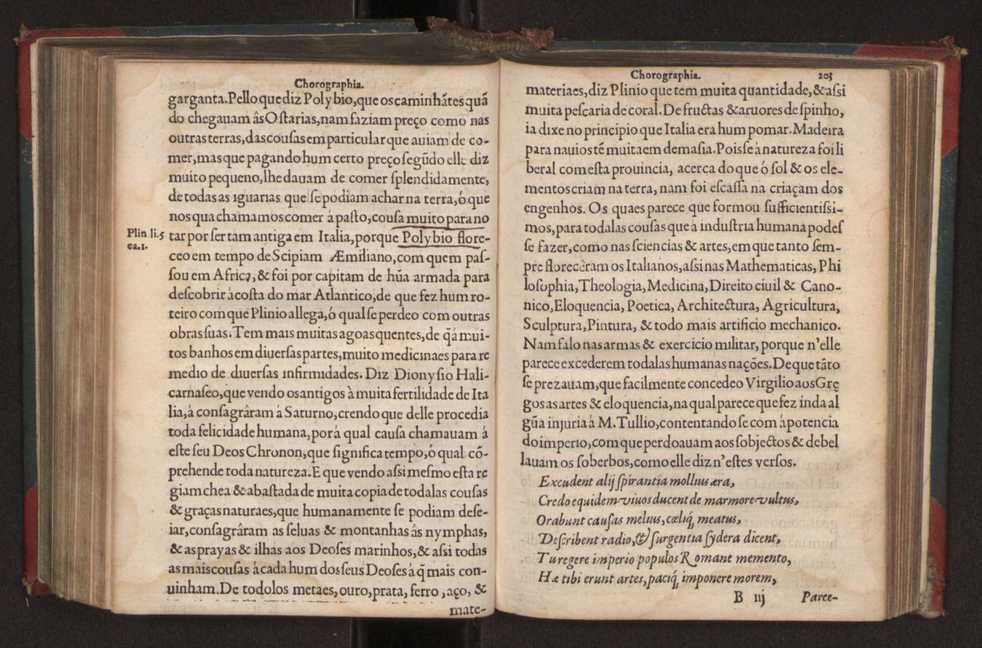 Chorographia.
garganta. Pello que diz Polybio, que os caminhãtes quã
do chegauam âs Ostarias, nam faziam preço como nas
outras terras, das cousas em particular que auiam de co-
mer, mas que pagando hum certo preço segũdo elle diz
muito pequeno, lhe dauam de comer splendidamente,
de todas as iguarias que se podiam achar na terra, ó que
nos qua chamamos comer à pasto, cousa muito para no
Plin. li. 5
ca. 1.
tar por ser tam antiga em Italia, porque Polybio flore-
ceo em tempo de Scipiam Æmiliano, com quem pas-
sou em Africa, & foi por capitam de hũa armada para
descobrir à costa do mar Atlantico, de que fez hum ro-
teiro com que Plinio allega, ó qual se perdeo com outras
obras suas. Tem mais muitas agoas quentes, de q̃ á mui-
tos banhos em diuersas partes, muito medicinaes para re
medio de diuersas infirmidades. Diz Dionysio Hali-
carnaseo, que vendo os antigos à muita fertilidade de Ita
lia, à consagràram à Saturno, crendo que delle procedia
toda felicidade humana, por à qual causa chamauam á
este seu Deos Chronon, que significa tempo, ó qual cõ-
prehende toda natureza. E que vendo assi mesmo esta re
giam chea & abastada de muita copia de todalas cousas
& graças naturaes, que humanamente se podiam dese-
iar, consagràram as seluas & montanhas âs nymphas,
& as prayas & ilhas aos Deoses marinhos, & assi todas
as mais cousas à cada hum dos seus Deoses à q̃ mais con-
uinham. De todolos metaes, ouro, prata, ferro, aço, &
mate-
Chorographia. 203
materiaes, diz Plinio que tem muita quantidade, & assi
muita pescaria de coral. De fructas & aruores de spinho,
ia dixe no principio que Italia era hum pomar. Madeira
para nauios tẽ muita em demasia. Pois se à natureza foi li
beral com esta prouincia, acerca do que ó sol & os ele-
mentos criam na terra, nam foi escassa na criaçam dos
engenhos. Os quaes parece que formou sufficientissi-
mos, para todalas cousas que à industria humana podes
se fazer, como nas sciencias & artes, em que tanto sem-
pre florecèram os Italianos, assi nas Mathematicas, Phi
losophia, Theologia, Medicina, Direito ciuil & Cano-
nico, Eloquencia, Poetica, Architectura, Agricultura,
Sculptura, Pintura, & todo mais artificio mechanico.
Nam falo nas armas & exercicio militar, porque n'elle
parece excederem todalas humanas nações. De que tãto
se prezauam, que facilmente concedeo Virgilio aos Gre
gos as artes & eloquencia, na qual parece que fez inda al
gũa injuria à M. Tullio, contentando se com à potencia
do imperio, com que perdoauam aos sobjectos & debel
lauam os soberbos, como elle diz n'estes versos.
Excudent alij spirantia mollius æra,
Credo equidem viuos ducent de marmore vultus,
Orabunt causas melius, cæliq́; meatus,
Describent radio, & surgentia sydera dicent,
Tu regere imperio populos Romane memento,
Hæ tibi erunt artes, paciq́; imponere morem,
B iij Parce-